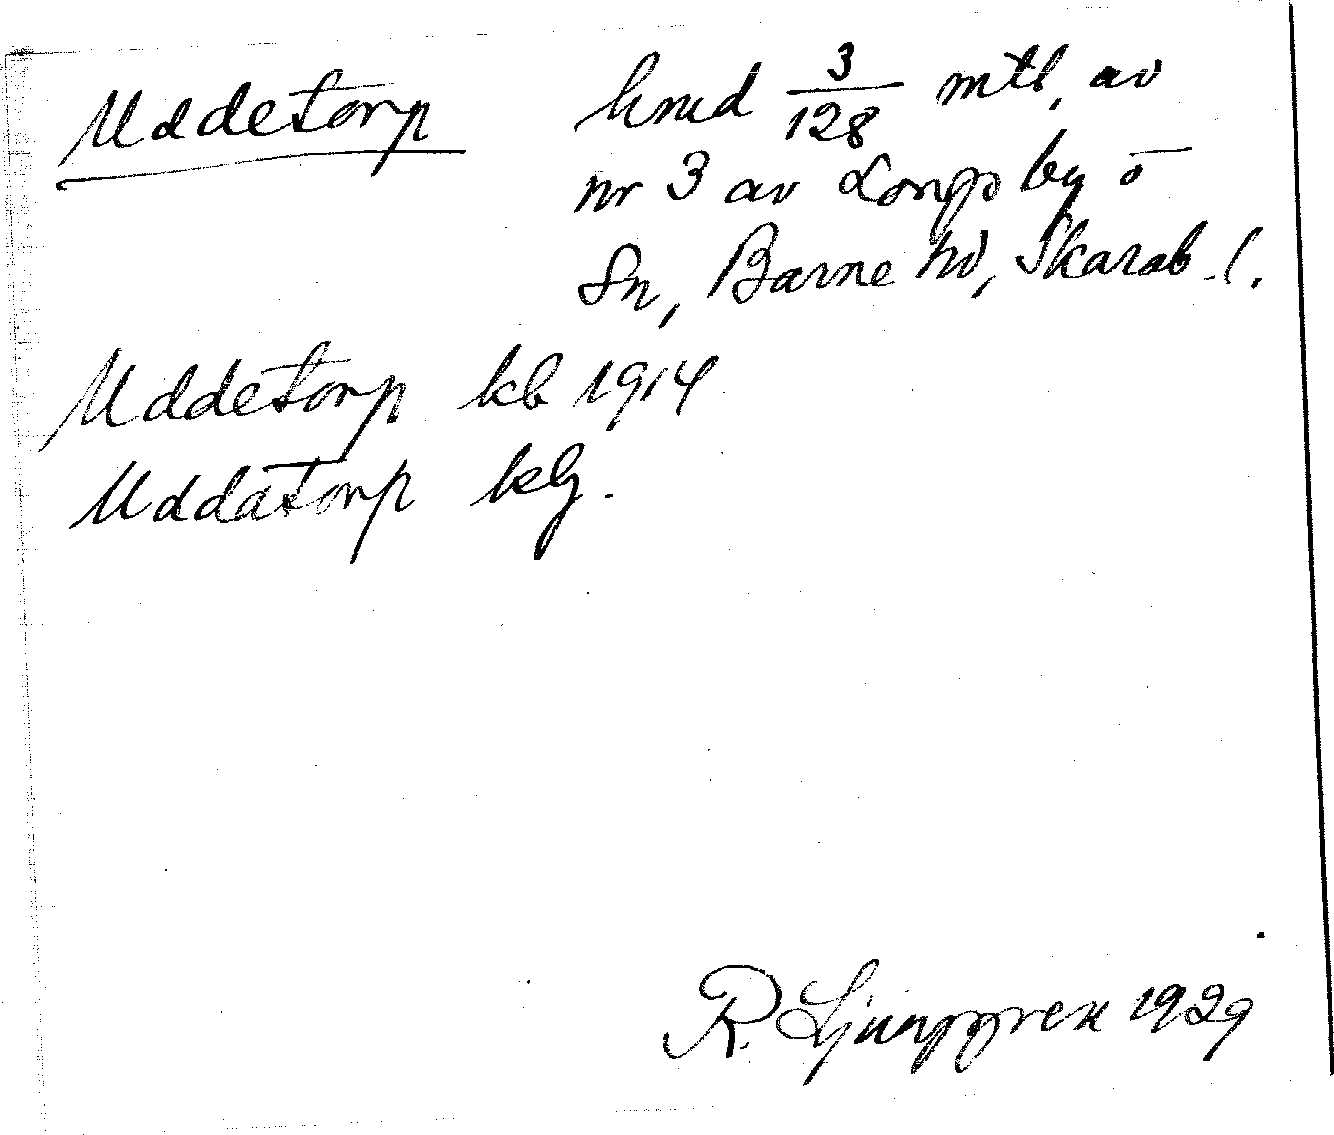 Uddetorp hmd 3/128 mtl, av
nr 3 av Longs by o
Sn, Barne hd, Skarab. l.
Uddetorp kb 1914
Uddatorp kg.
R. Ljunggren 1929